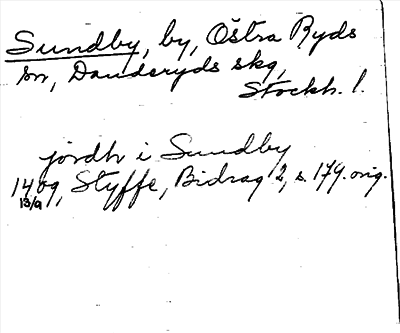 Sundby, by, Östra Ryds
sn, Danderyds skg,
Stockh. l.
jordh i Sundby
1409, Styffe, Bidrag 2, s. 179. orig.
13/9